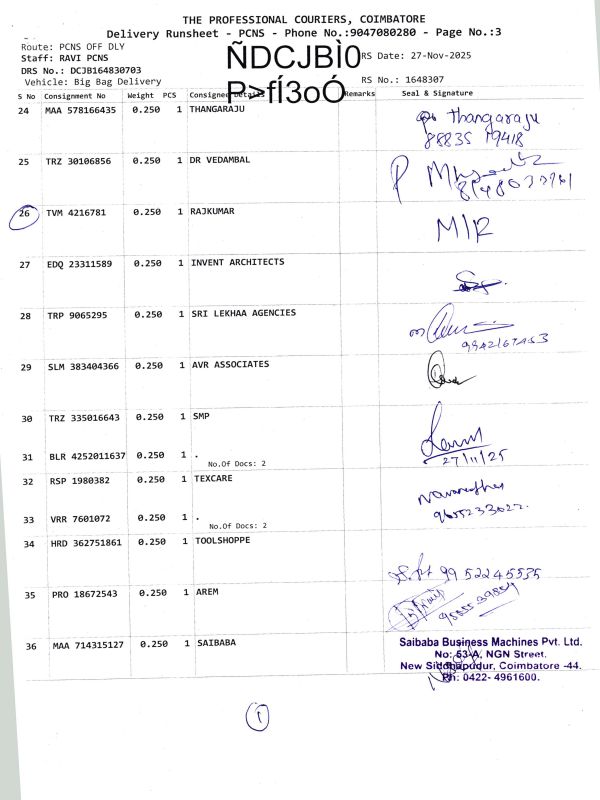 THE PROFESSIONAL COURIERS, COIMBATORE
Delivery Runsheet - PCNS - Phone No.:9047080280 - Page No.:3
Route: PCNS OFF DLY
Staff: RAVI PCNS
DRS No.: DCJB164830703
Vehicle: Big Bag Delivery
ÑDCJBÌ0
P>fÍ3oÓ
RS Date: 27-Nov-2025
RS No.: 1648307
S No Consignment No Weight PCS Consignee Details Remarks Seal & Signature
24 MAA 578166435 0.250 1 THANGARAJU Thangaraju
88835 19418
25 TRZ 30106856 0.250 1 DR VEDAMBAL
26 TVM 4216781 0.250 1 RAJKUMAR M/R
27 EDQ 23311589 0.250 1 INVENT ARCHITECTS
28 TRP 9065295 0.250 1 SRI LEKHAA AGENCIES
29 SLM 383404366 0.250 1 AVR ASSOCIATES
30 TRZ 335016643 0.250 1 SMP
27/11/25
31 BLR 4252011637 0.250 1 .
No.Of Docs: 2
32 RSP 1980382 0.250 1 TEXCARE
33 VRR 7601072 0.250 1 .
No.Of Docs: 2
34 HRD 362751861 0.250 1 TOOLSHOPPE
99 52245535
35 PRO 18672543 0.250 1 AREM
36 MAA 714315127 0.250 1 SAIBABA
Saibaba Business Machines Pvt. Ltd.
No: 53-A, NGN Street,
New Siddhapudur, Coimbatore -44.
Ph: 0422- 4961600.
1